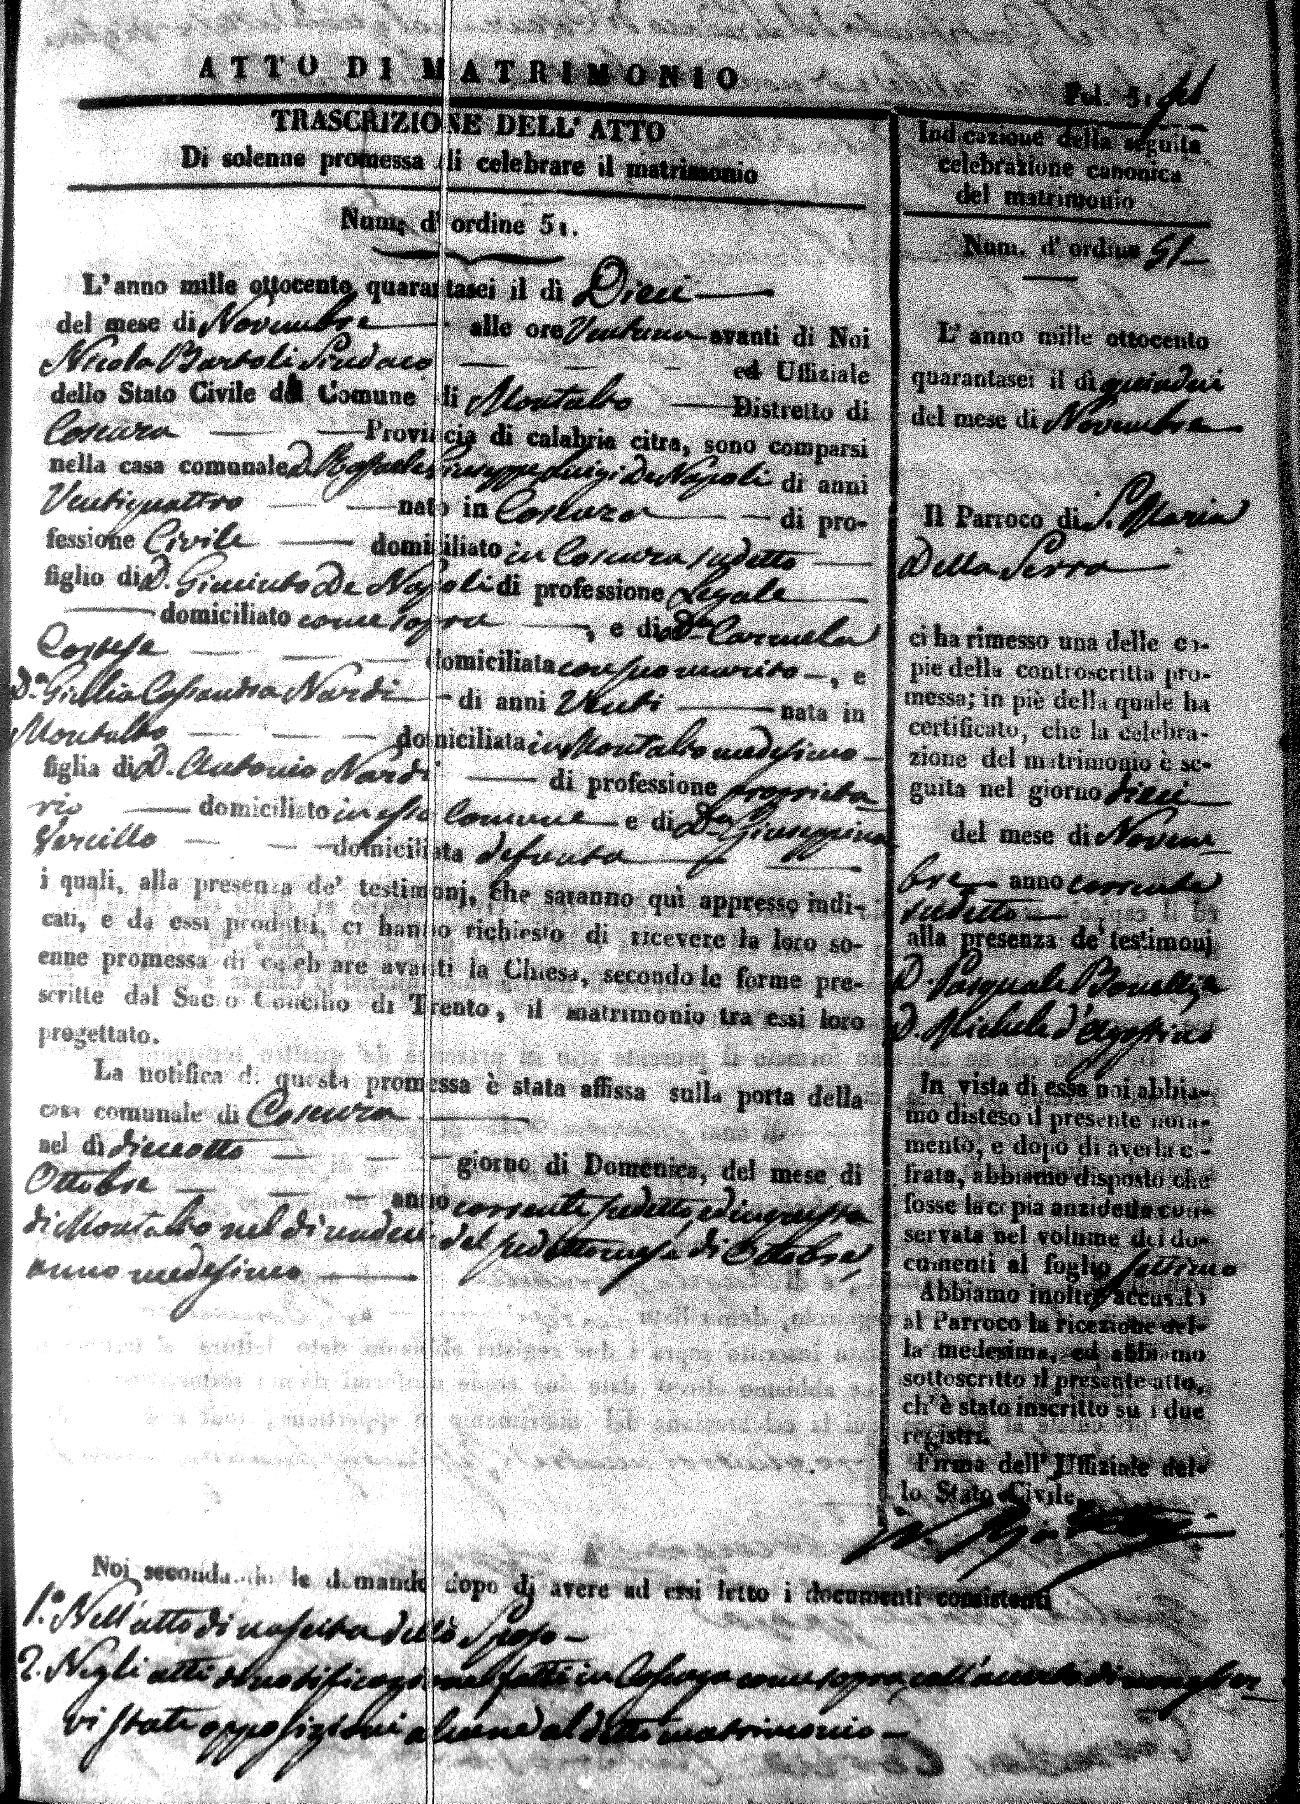 ATTO DI MATRIMONIO
Fol. 51
TRASCRIZIONE DELL' ATTO
Di solenne promessa di celebrare il matrimonio
Num. d' ordine 51.
L'anno mille ottocento quarantasei il dì Dieci
del mese di Novembre alle ore Ventuno avanti di Noi
Nicola Bartoli Sindaco ed Uffiziale
dello Stato Civile del Comune di Montalto Distretto di
Cosenza Provincia di calabria citra, sono comparsi
nella casa comunale D. Raffaele Giuseppe Luigi De Napoli di anni
Ventiquattro nato in Cosenza di pro-
fessione Civile domiciliato in Cosenza sudetto
figlio di D. Giacinto De Napoli di professione Legale
domiciliato come sopra, e di D.na Carmela
Cortese domiciliata con suo marito, e
D.a Giulia Cassandra Nardi di anni Venti nata in
Montalto domiciliata in Montalto medesimo
figlia di D. Antonio Nardi di professione proprieta-
rio domiciliato in esso Comune e di D.na Giuseppina
Vercillo domiciliata defunta
i quali, alla presenza de' testimonj, che saranno quì appresso indi-
cati, e da essi prodotti, ci hanno richiesto di ricevere la loro so-
enne promessa di celebrare avanti la Chiesa, secondo le forme pre-
scritte dal Sacro Concilio di Trento, il matrimonio tra essi loro
progettato.
La notifica di questa promessa è stata affissa sulla porta della
casa comunale di Cosenza
nel dì dieceotto giorno di Domenica, del mese di
Ottobre anno corrente sudetto, ed in questa
di Montalto nel dì undeci del sudetto mese di Ottobre,
anno medesimo
Indicazione della seguita
celebrazione canonica
del matrimonio
Num. d' ordine 51
L' anno mille ottocento
quarantasei il dì quindeci
del mese di Novembre
Il Parroco di S. Maria
Della Serra
ci ha rimesso una delle co-
pie della controscritta pro-
messa; in piè della quale ha
certificato, che la celebra-
zione del matrimonio è se-
guita nel giorno dieci
del mese di Novem-
bre anno corrente
sudetto
alla presenza de' testimonj
D. Pasquale Bonelli, e
D. Michele d'Agostino
In vista di essa noi abbia-
mo disteso il presente nota-
mento, e dopo di averla ci-
frata, abbiamo disposto che
fosse la copia anzidetta con-
servata nel volume dei do-
cumenti al foglio settimo
Abbiamo inoltre accusato
al Parroco la ricezione del-
la medesima, ed abbiamo
sottoscritto il presente atto,
ch' è stato inscritto su i due
registri.
Firma dell' Uffiziale del-
lo Stato Civile
Noi secondando le domande dopo di avere ad essi letto i documenti consistenti
1.° Nell'atto di nascita dello Sposo
2. Negli atti di notificazione fatti in Cosenza come sopra, coll'avverto di non esser-
vi state opposizioni alcune al detto matrimonio